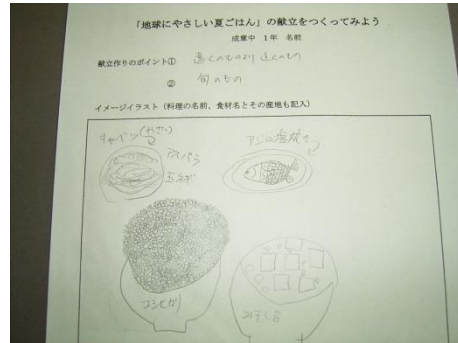 「地球にやさしい夏ごはん」の献立をつくってみよう
成章中 1年 名前
献立作りのポイント① 遠くのものより近くのもの
② 旬のもの
イメージイラスト(料理の名前、食材名とその産地も記入)
キャベツ(やさい) アジの塩焼き
アスパラ
玉ネギ
コシヒカリ みそ汁